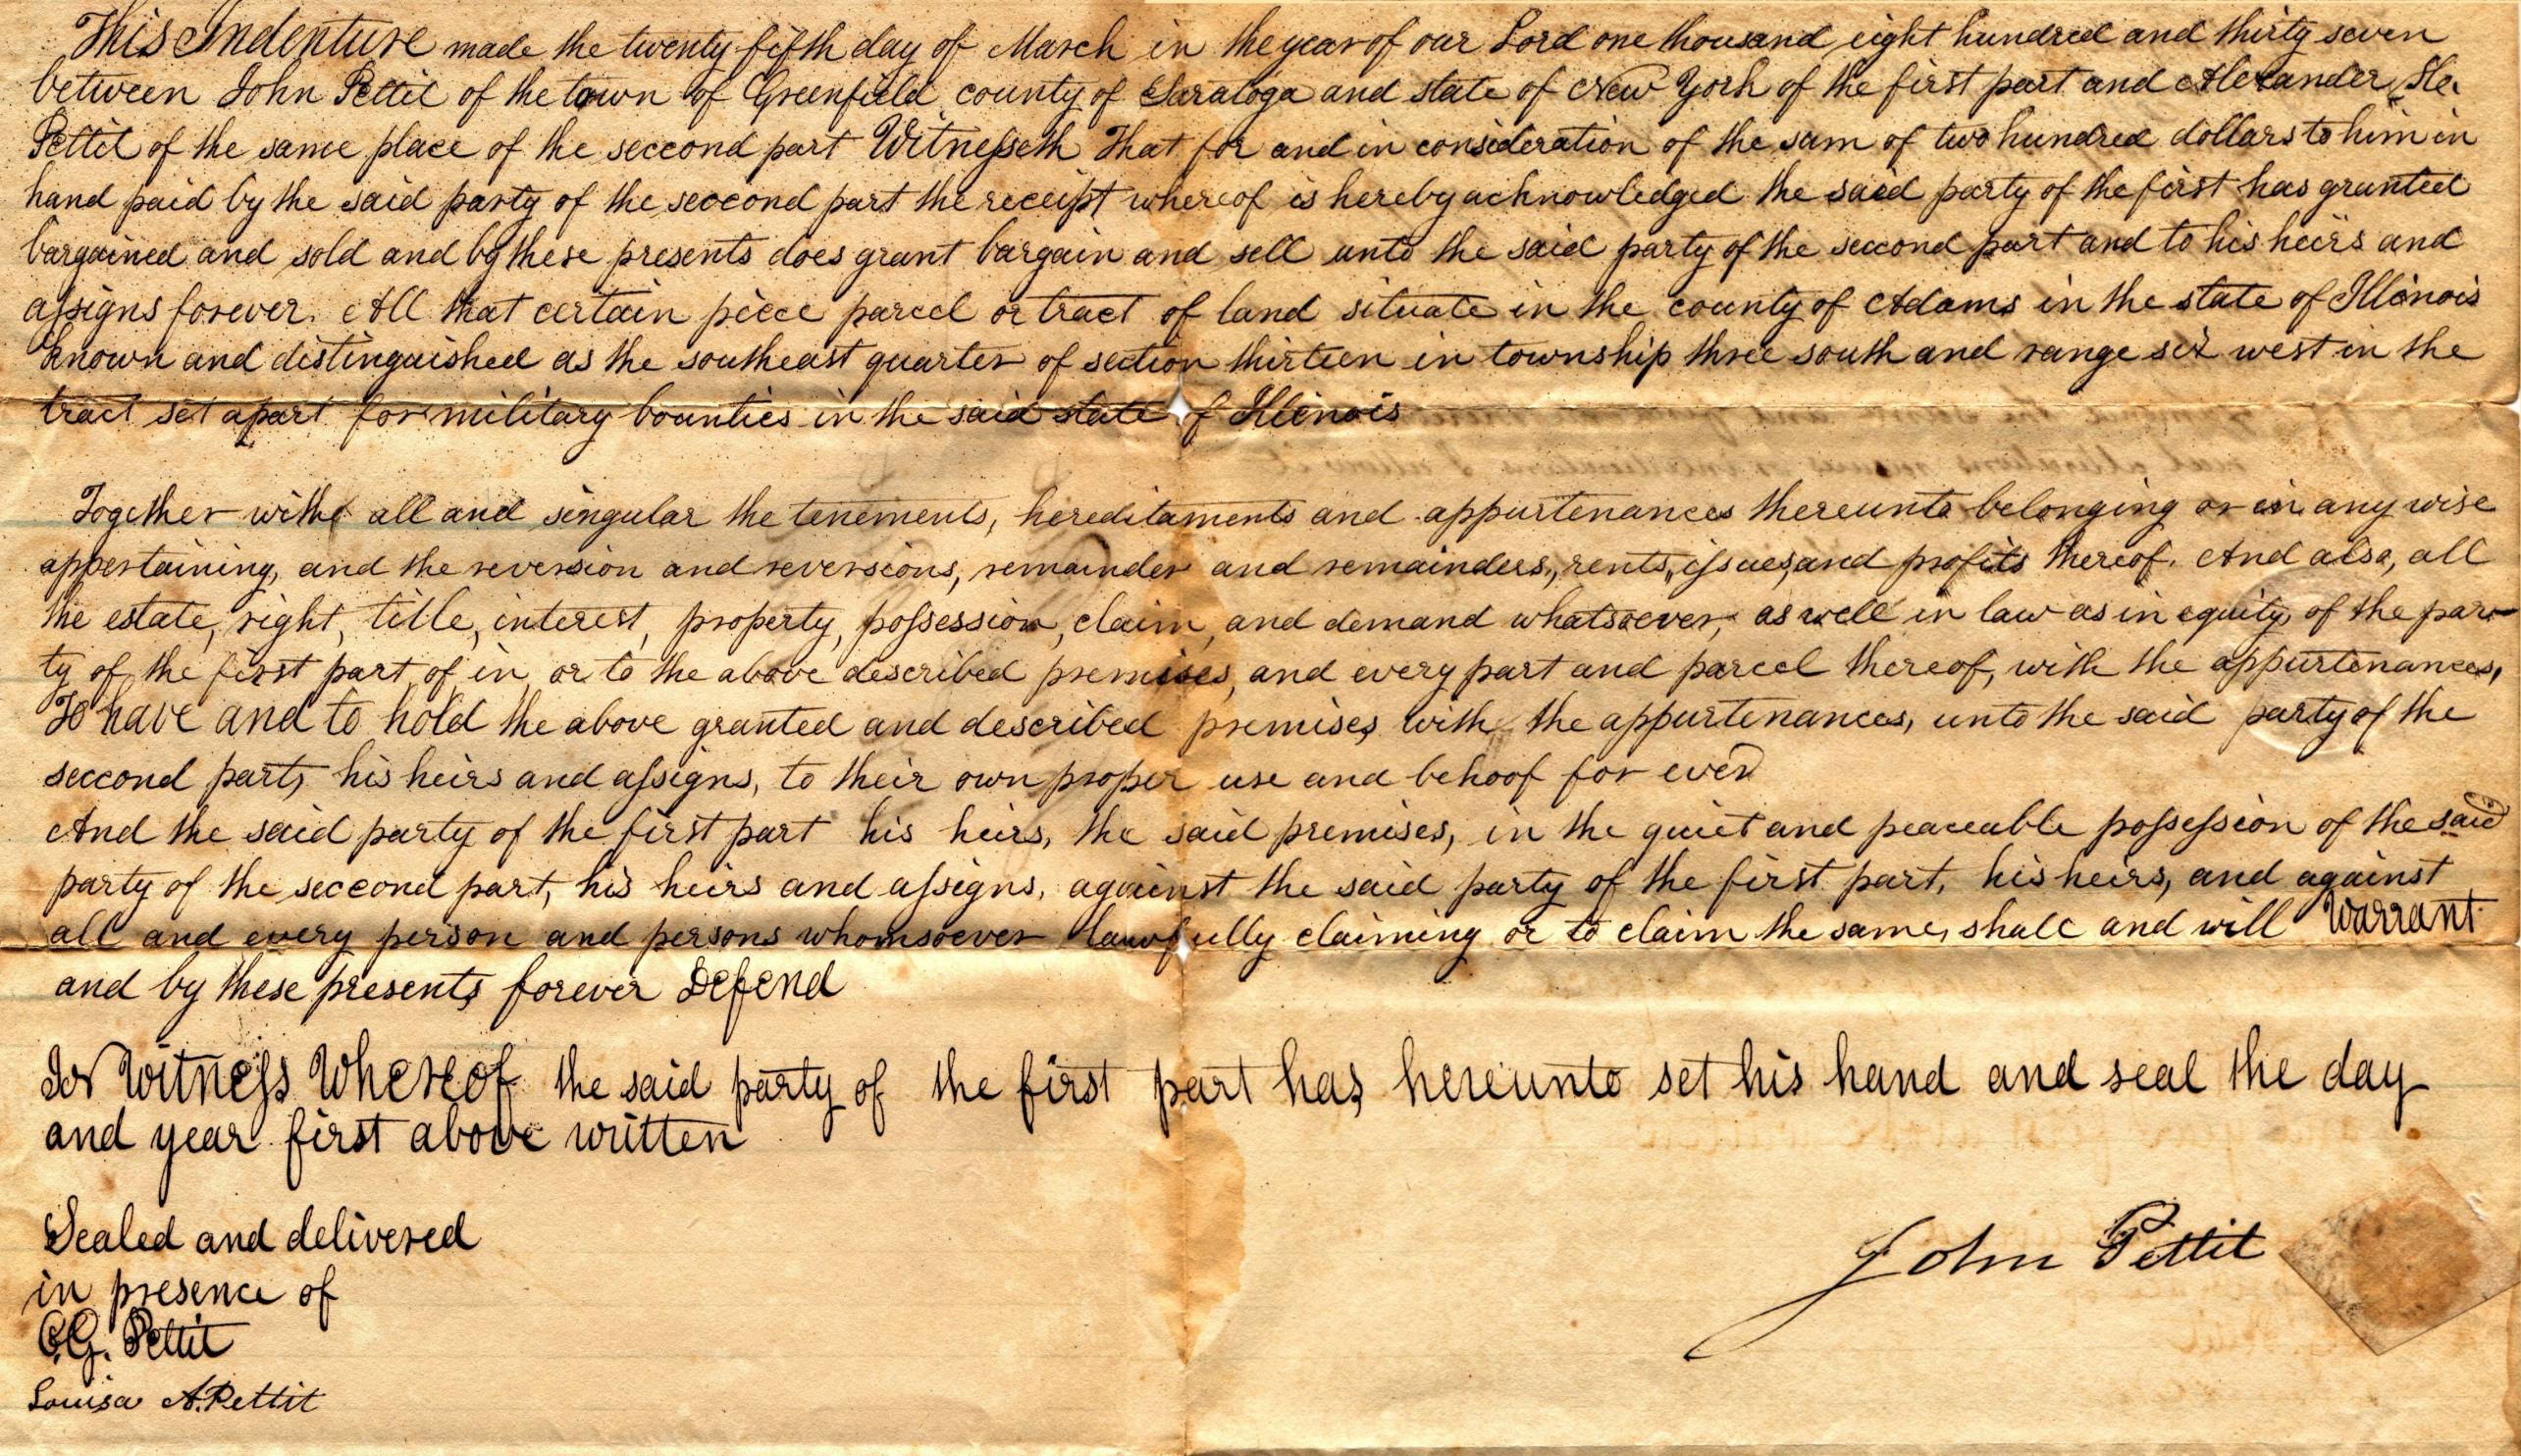 This Indenture made the twenty fifth day of March in the year of our Lord one thousand eight hundred and thirty seven
between John Pettit of the town of Greenfield county of Saratoga and state of New York of the first part and Alexander
Pettit of the same place of the seccond part Witnesseth That for and in consideration of the sum of two hundred dollars to him in
hand paid by the said party of the seccond part the receipt whereof is hereby acknowledged the said party of the first has granted
bargained and sold and by these presents does grant bargain and sell unto the said party of the second part and to his heirs and
assigns forever. All that certain piece parcel or tract of land situate in the county of Adams in the state of Illinois
known and distinguished as the southeast quarter of section thirteen in township three south and range six west in the
tract set apart for military bounties in the said state of Illinois
Together with all and singular the tenements, hereditaments and appurtenances thereunto belonging or in any wise
appertaining, and the reversion and reversions, remainder and remainders, rents, issues, and profits thereof. And also, all
the estate, right, title, interest, property, possession, claim, and demand whatsoever, as well in law as in equity, of the par-
ty of the first part, of in, or to the above described premises, and every part and parcel thereof, with the appurtenances,
To have and to hold the above granted and described premises, with the appurtenances, unto the said party of the
seccond part, his heirs and assigns, to their own proper use and behoof for ever
And the said party of the first part his heirs, the said premises, in the quiet and peaceable possession of the said
party of the seccond part, his heirs and assigns, against the said party of the first part, his heirs, and against
all and every person and persons whomsoever lawfully claiming or to claim the same, shall and will Warrant
and by these presents forever Defend
In Witness Whereof the said party of the first part has hereunto set his hand and seal the day
and year first above written
Sealed and delivered
in presence of
C.G. Pettit
Louisa A. Pettit
John Pettit